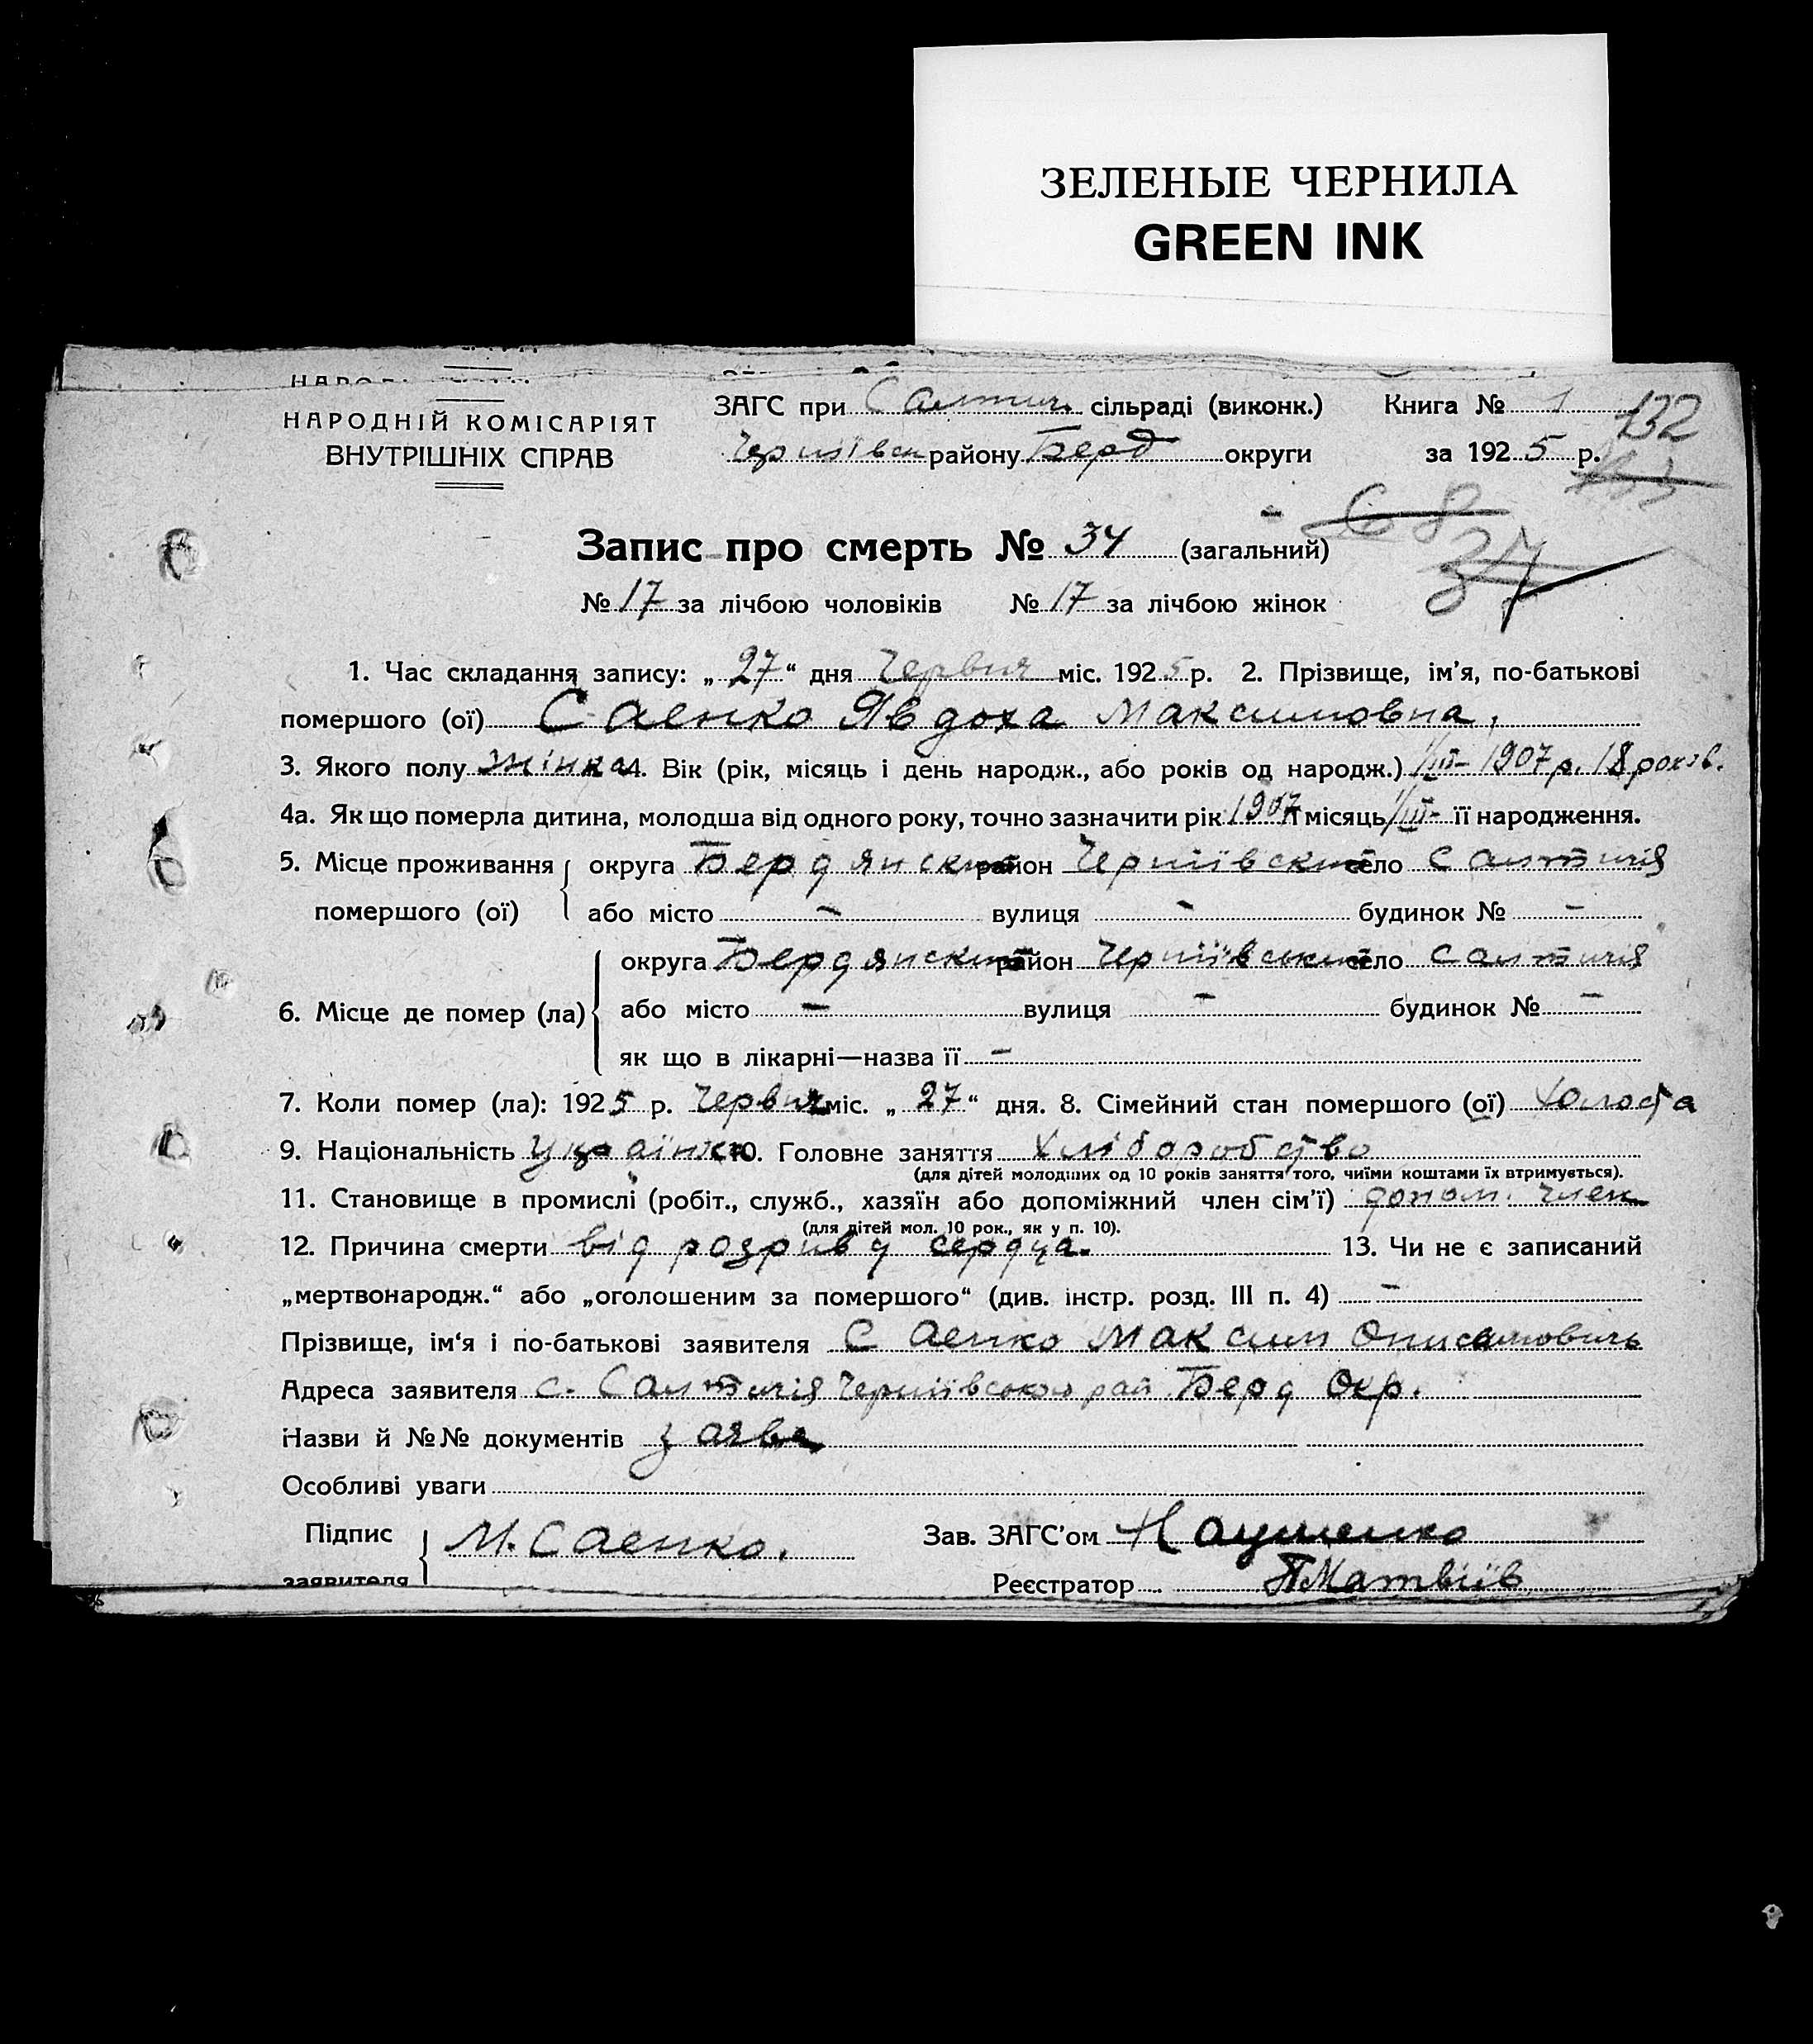 ЗЕЛЕНЫЕ ЧЕРНИЛА
GREEN INK
НАРОДНІЙ КОМІСАРІЯТ
ВНУТРІШНІХ СПРАВ
ЗАГС при Салтич. сільраді (виконк.)
Книга № 1
132
району Берд округи
за 1925 р.
68
37
Запис про смерть № 34 (загальний)
№ 17 за лічбою чоловіків № 17 за лічбою жінок
1. Час складання запису: „27“ дня Червня міс. 1925 р. 2. Прізвище, ім'я, по-батькові
помершого (ої) Саенко Явдоха Максимовна,
3. Якого полу жінка 4. Вік (рік, місяць і день народж., або років од народж.) 1/III– 1907 р. 18 років.
4а. Як що померла дитина, молодша від одного року, точно зазначити рік 1907 місяць 1/III– її народження.
5. Місце проживання округа Бердянский район Чернїівский село Салтичія
помершого (ої) або місто – вулиця – будинок № –
округа Бердянский район Чернїівський село Салтичія
6. Місце де помер (ла) або місто – вулиця – будинок № –
як що в лікарні—назва її –
7. Коли помер (ла): 1925 р. Червня міс. „27“ дня. 8. Сімейний стан помершого (ої) холоста
9. Національність Українка 10. Головне заняття Хліборобство
(для дітей молодших од 10 років заняття того, чиїми коштами їх втримується).
11. Становище в промислі (робіт., служб., хазяїн або допоміжний член сім'ї) допом. член
(для дітей мол. 10 рок., як у п. 10).
12. Причина смерти від розриву сердца. 13. Чи не є записаний
„мертвонародж.“ або „оголошеним за помершого“ (див. інстр. розд. III п. 4) –
Прізвище, ім'я і по-батькові заявителя Саенко Максим Онисимовичь
Адреса заявителя с. Салтичія рай Берд Окр.
Назви й №№ документів заява
Особливі уваги
Підпис
заявителя
М. Саенко.
Зав. ЗАГС'ом Наушенко
Реєстратор Матвіїв